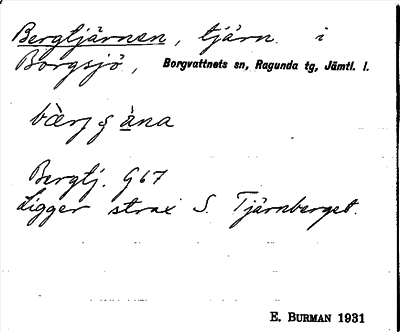 Bergtjärnen, tjärn i
Borgsjö, Borgvattnets sn, Ragunda tg, Jämtl. l.
Bergtj. G67
Ligger strax S. Tjärnberget.
E. BURMAN 1931